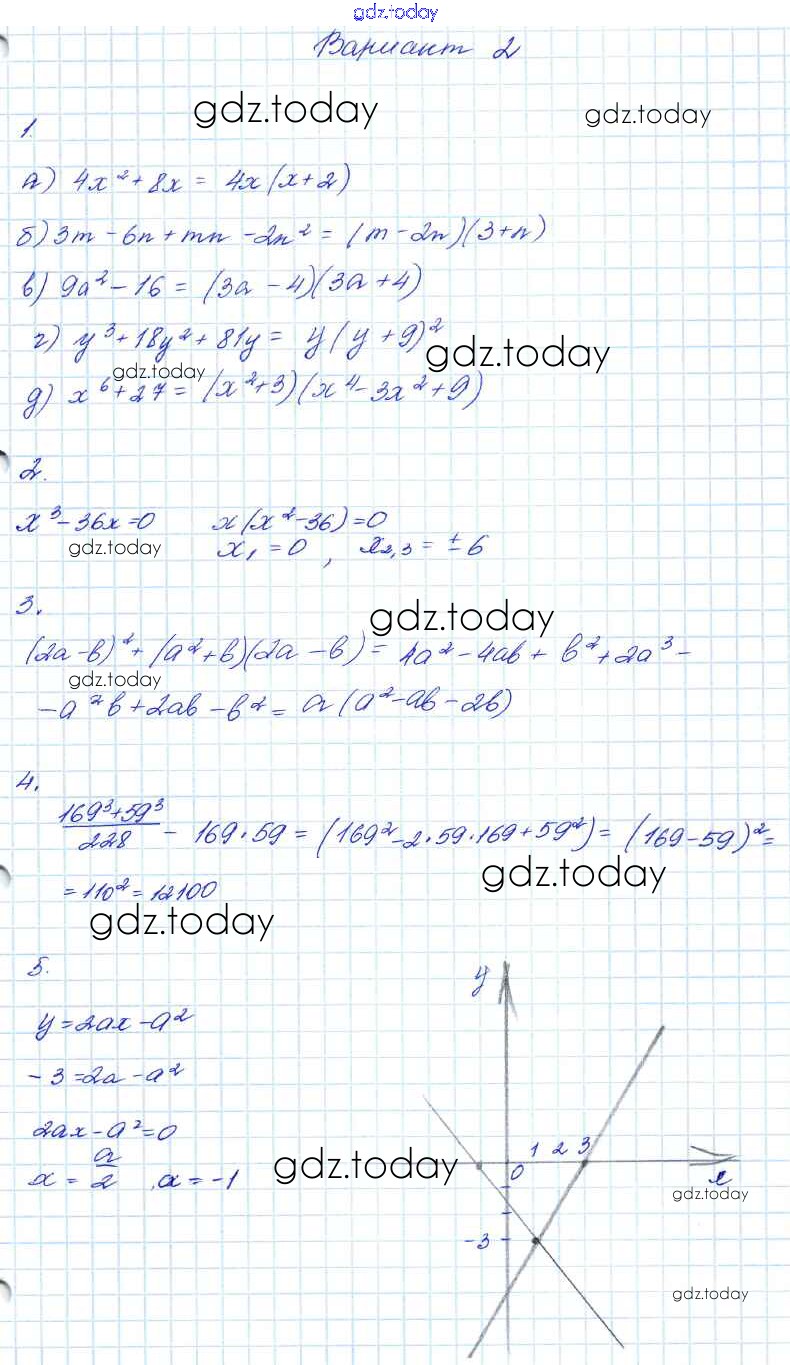 gdz.today
Вариант 2
gdz.today gdz.today
1.
а) 4x² + 8x = 4x(x+2)
б) 3m - 6n + mn - 2n² = (m - 2n)(3+n)
в) 9a² - 16 = (3a - 4)(3a + 4)
г) y³ + 18y² + 81y = y(y + 9)²
gdz.today
gdz.today
д) x⁶ + 27 = (x² + 3)(x⁴ - 3x² + 9)
2.
x³ - 36x = 0 x(x² - 36) = 0
gdz.today x₁ = 0, x₂,₃ = ± 6
3.
gdz.today
(2a - b)² + (a² + b)(2a - b) = 4a² - 4ab + b² + 2a³ -
gdz.today
- a²b + 2ab - b² = a(a² - ab - 2b)
4.
169³ + 59³ / 228 - 169 · 59 = (169² - 2 · 59 · 169 + 59²) = (169 - 59)² =
gdz.today
= 110² = 12100
gdz.today
5.
y
y = 2ax - a²
-3 = 2a - a²
2ax - a² = 0
1 2 3
x = a/2, a = -1
gdz.today
0 x
gdz.today
-3
gdz.today